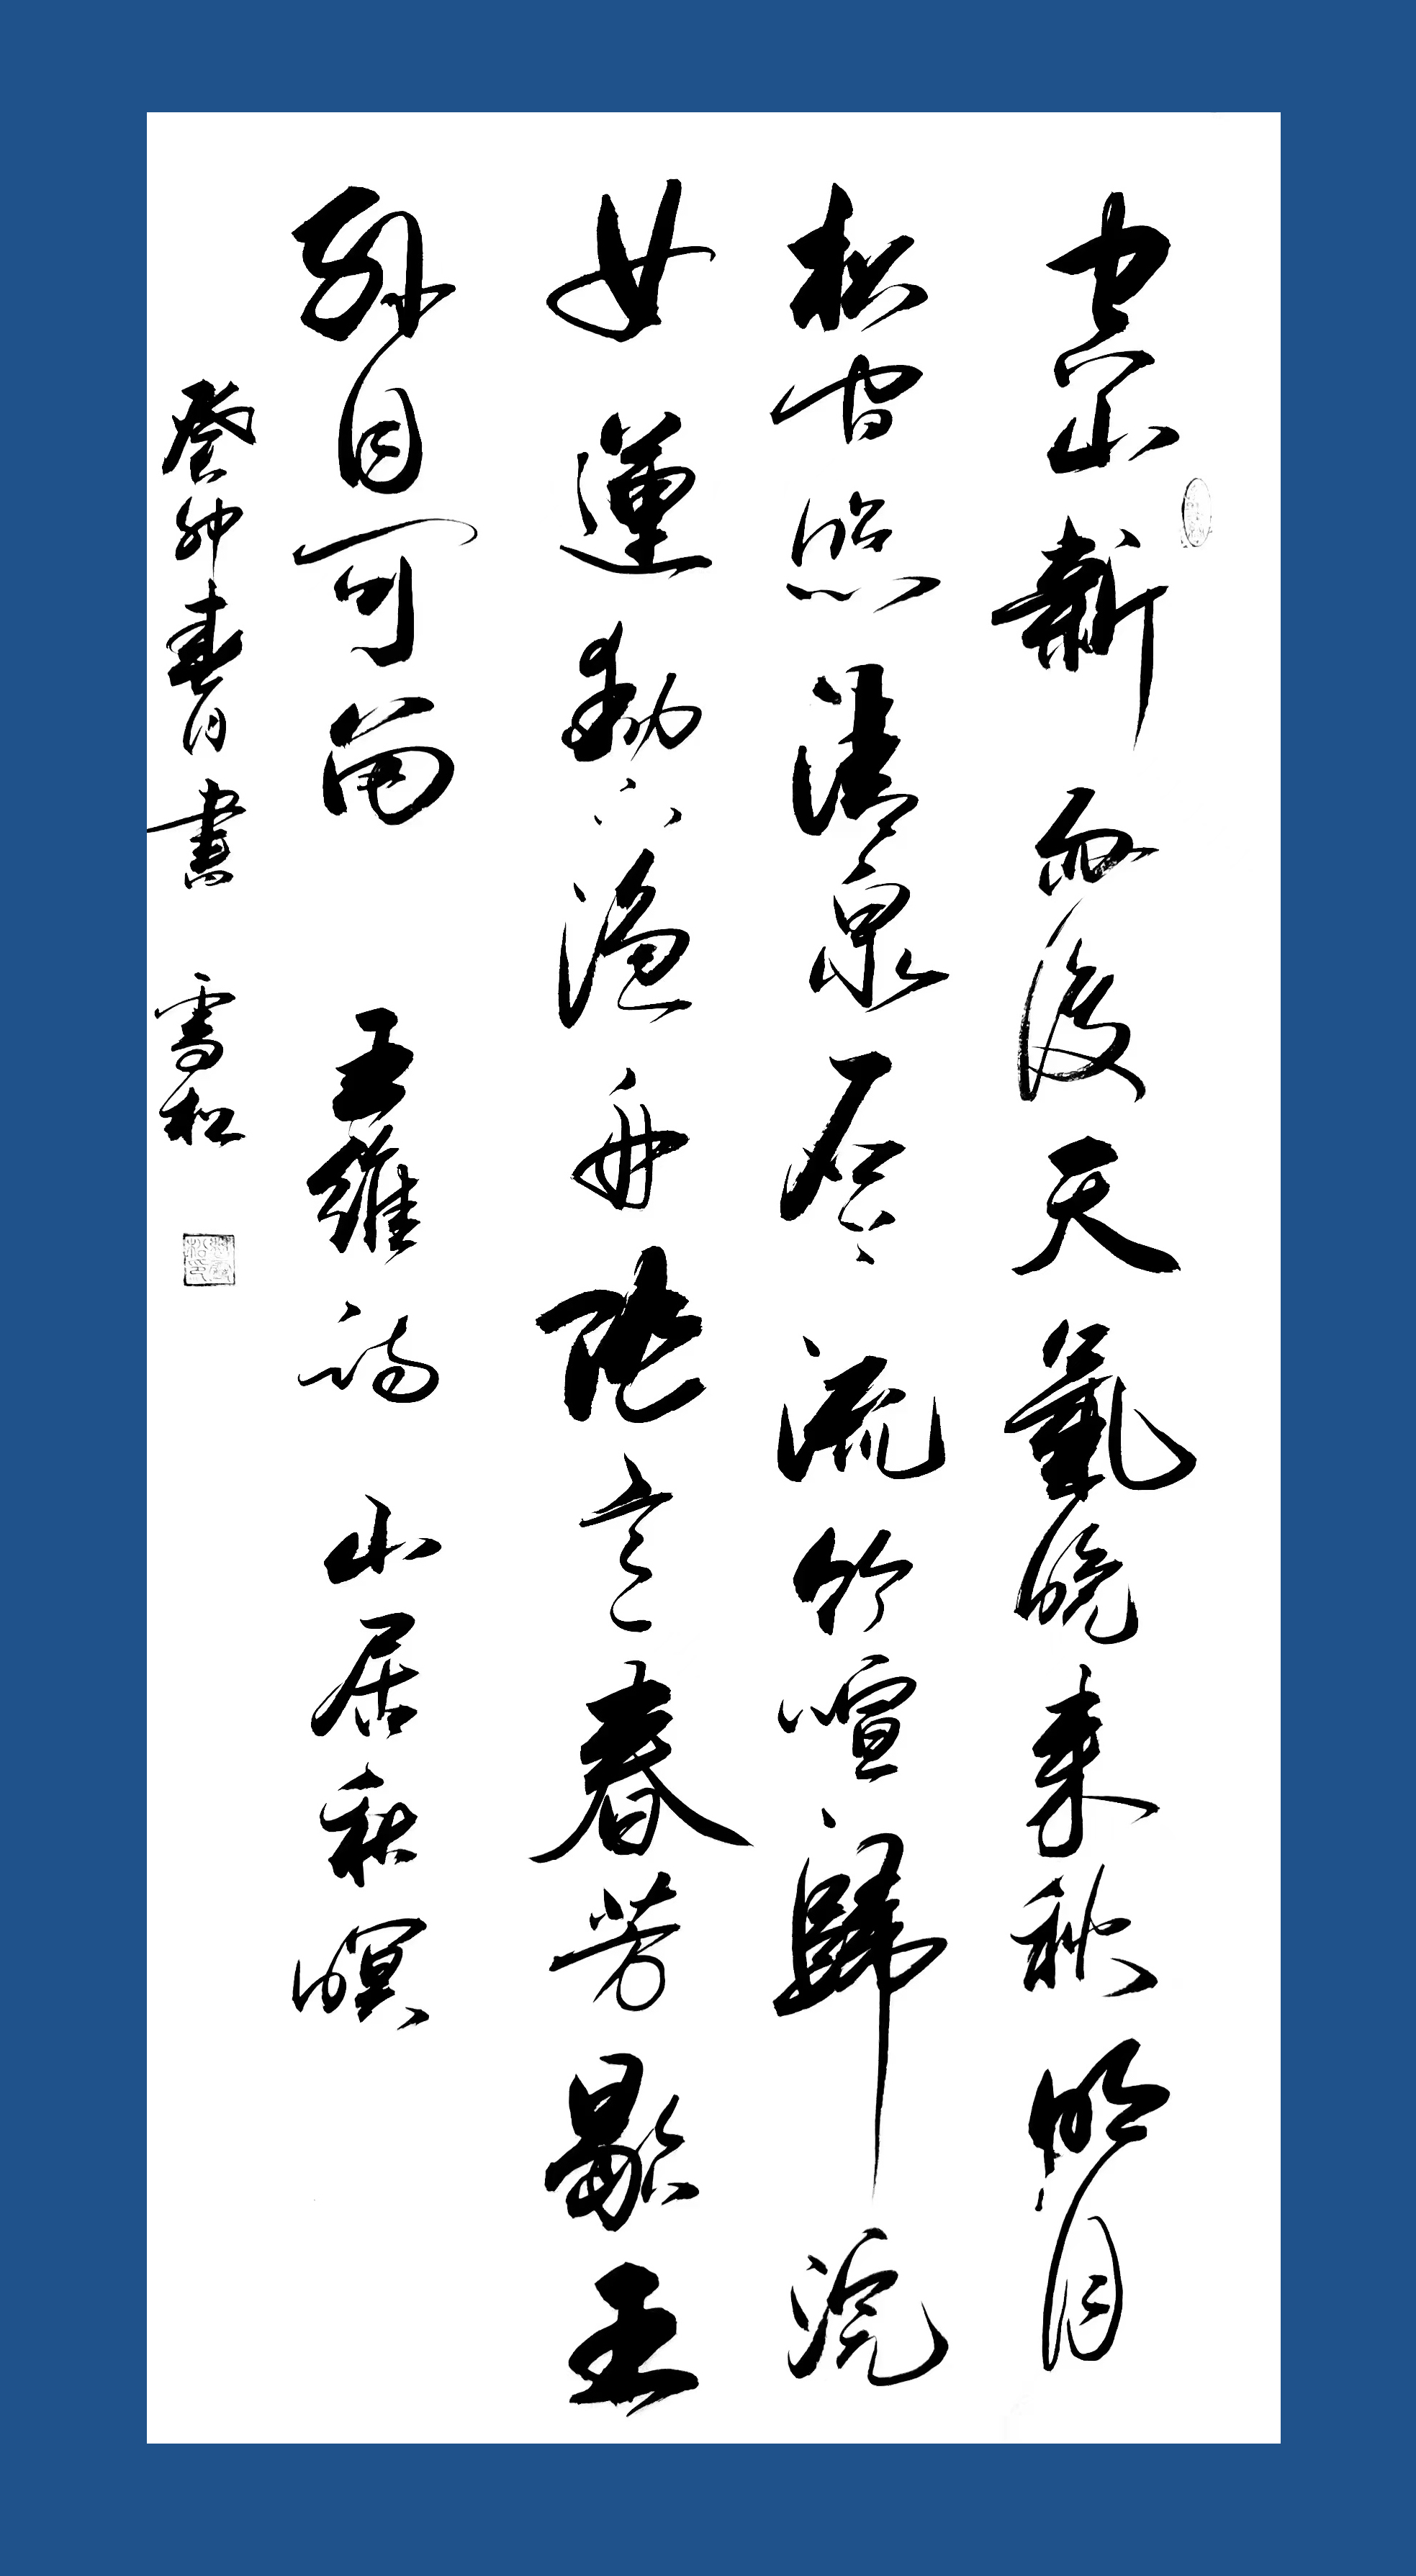 空山新雨後天氣晚来秋明月
松间照清泉石上流竹喧歸浣
女蓮動下漁舟随意春芳歇王
孫自可留 王維詩 山居秋暝
癸卯春月書 雪松